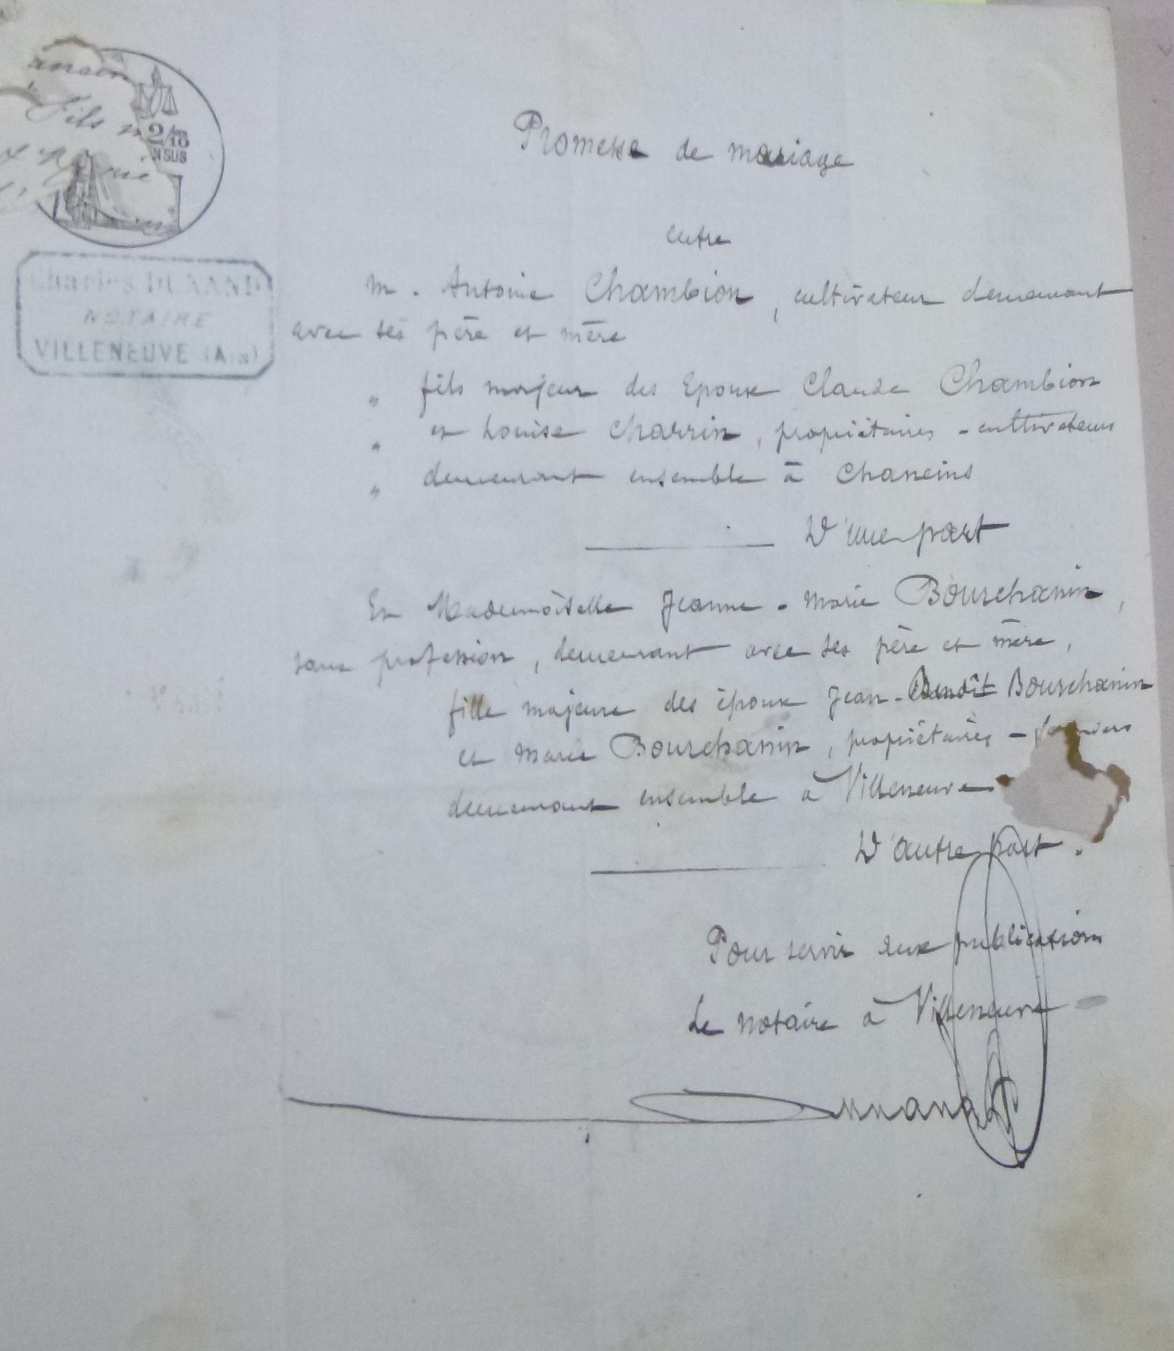 Promesse de mariage
entre
M. Antoine Chambion, cultivateur demeurant
avec ses père et mère
" fils majeur des Epoux Claude Chambion
" et Louise Charrin, propriétaires-cultivateurs
" demeurant ensemble à Chaneins
D'une part
Et Mademoiselle Jeanne-Marie Bourchanin,
sans profession, demeurant avec ses père et mère,
fille majeure des époux Jean-Benoît Bourchanin
et Marie Bourchanin, propriétaires-
demeurant ensemble à Villeneuve
D'autre part.
Pour servir aux publications
Le notaire à Villeneuve
Dunand
Charles DUNAND
NOTAIRE
VILLENEUVE (Ain)
fils
2/10
EN SUS